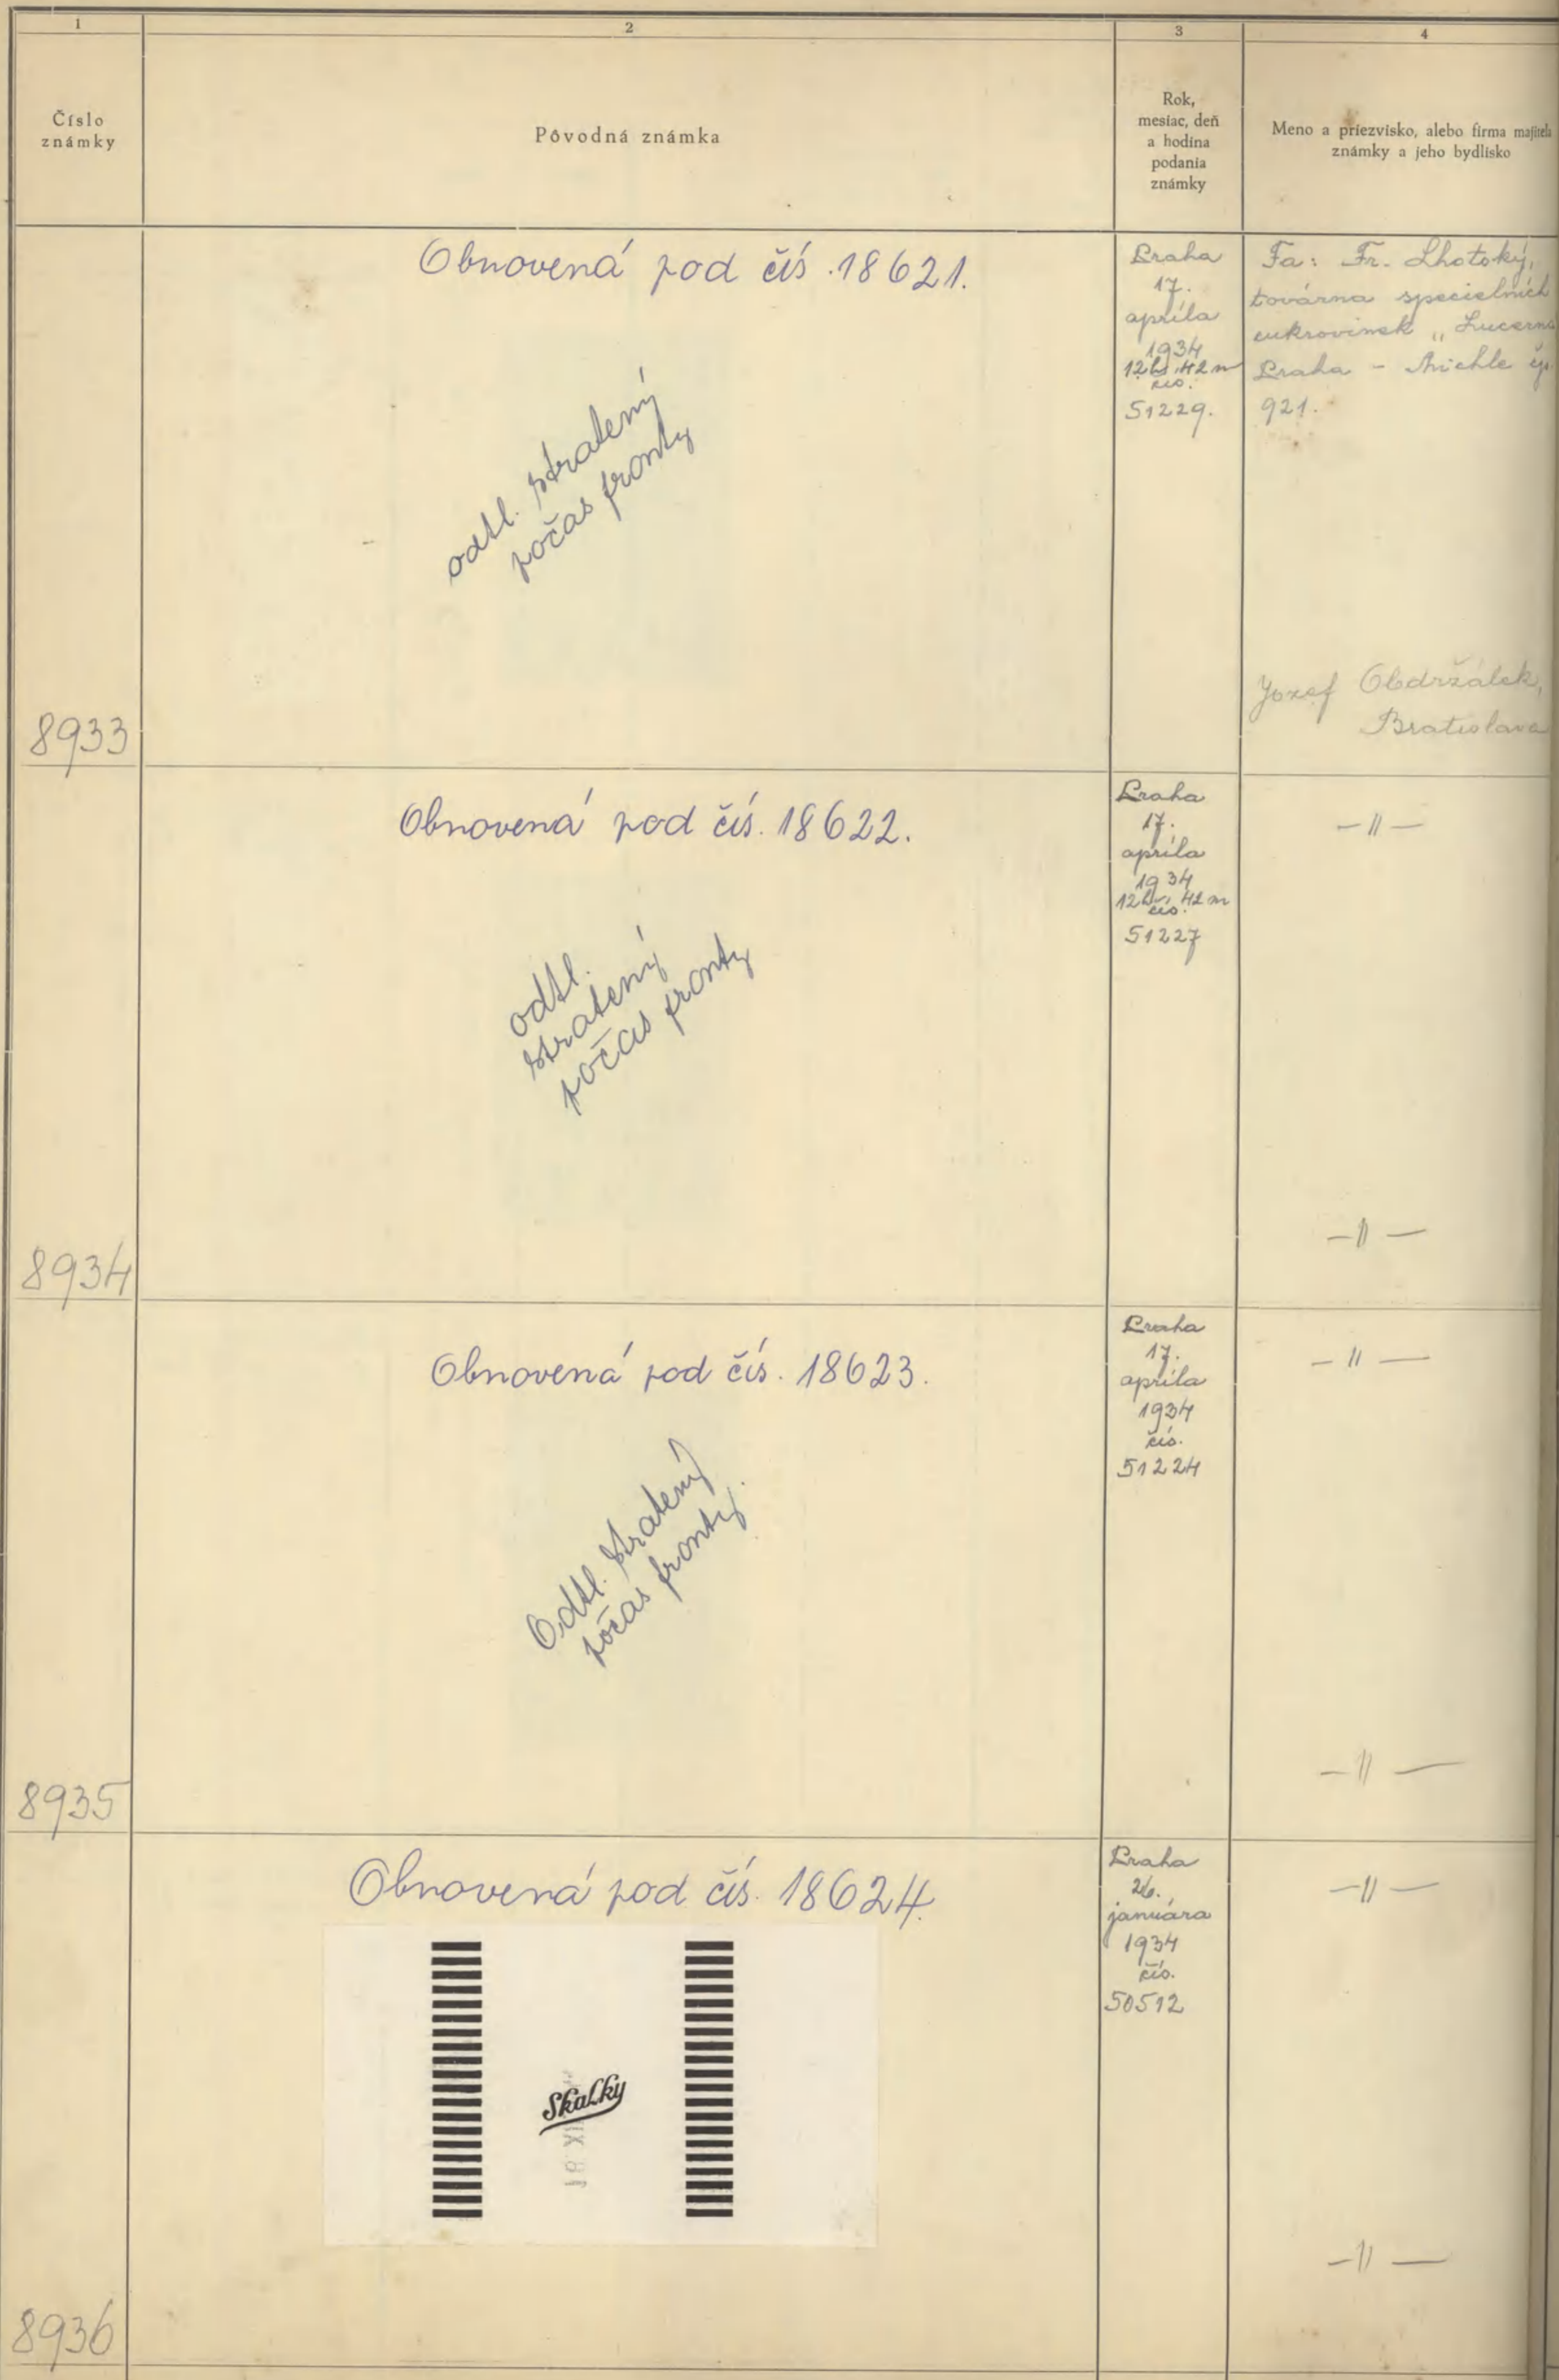 1
2
3
4
Číslo
známky
Pôvodná známka
Rok,
mesiac, deň
a hodina
podania
známky
Meno a priezvisko, alebo firma majiteľa
známky a jeho bydlisko
8933
Obnovená pod čís. 18621.
odtl. stratený
počas fronty
Praha
17.
apríla
1934
12 h, 42 m
čís.
51229.
Fa: Fr. Lhotský,
továrna specielních
cukrovinek „Lucerna
Praha - Michle čp.
921.
Jozef Obdržálek,
Bratislava
8934
Obnovená pod čís. 18622.
odtl.
stratený
počas fronty
Praha
17.
apríla
1934
12 h, 42 m
čís.
51227
—〃—
—〃—
8935
Obnovená pod čís. 18623.
Odtl. stratený
počas fronty.
Praha
17.
apríla
1934
čís.
51224
—〃—
—〃—
8936
Obnovená pod čís. 18624.
Skalky
Praha
26.
januára
1934
čís.
50512
—〃—
—〃—